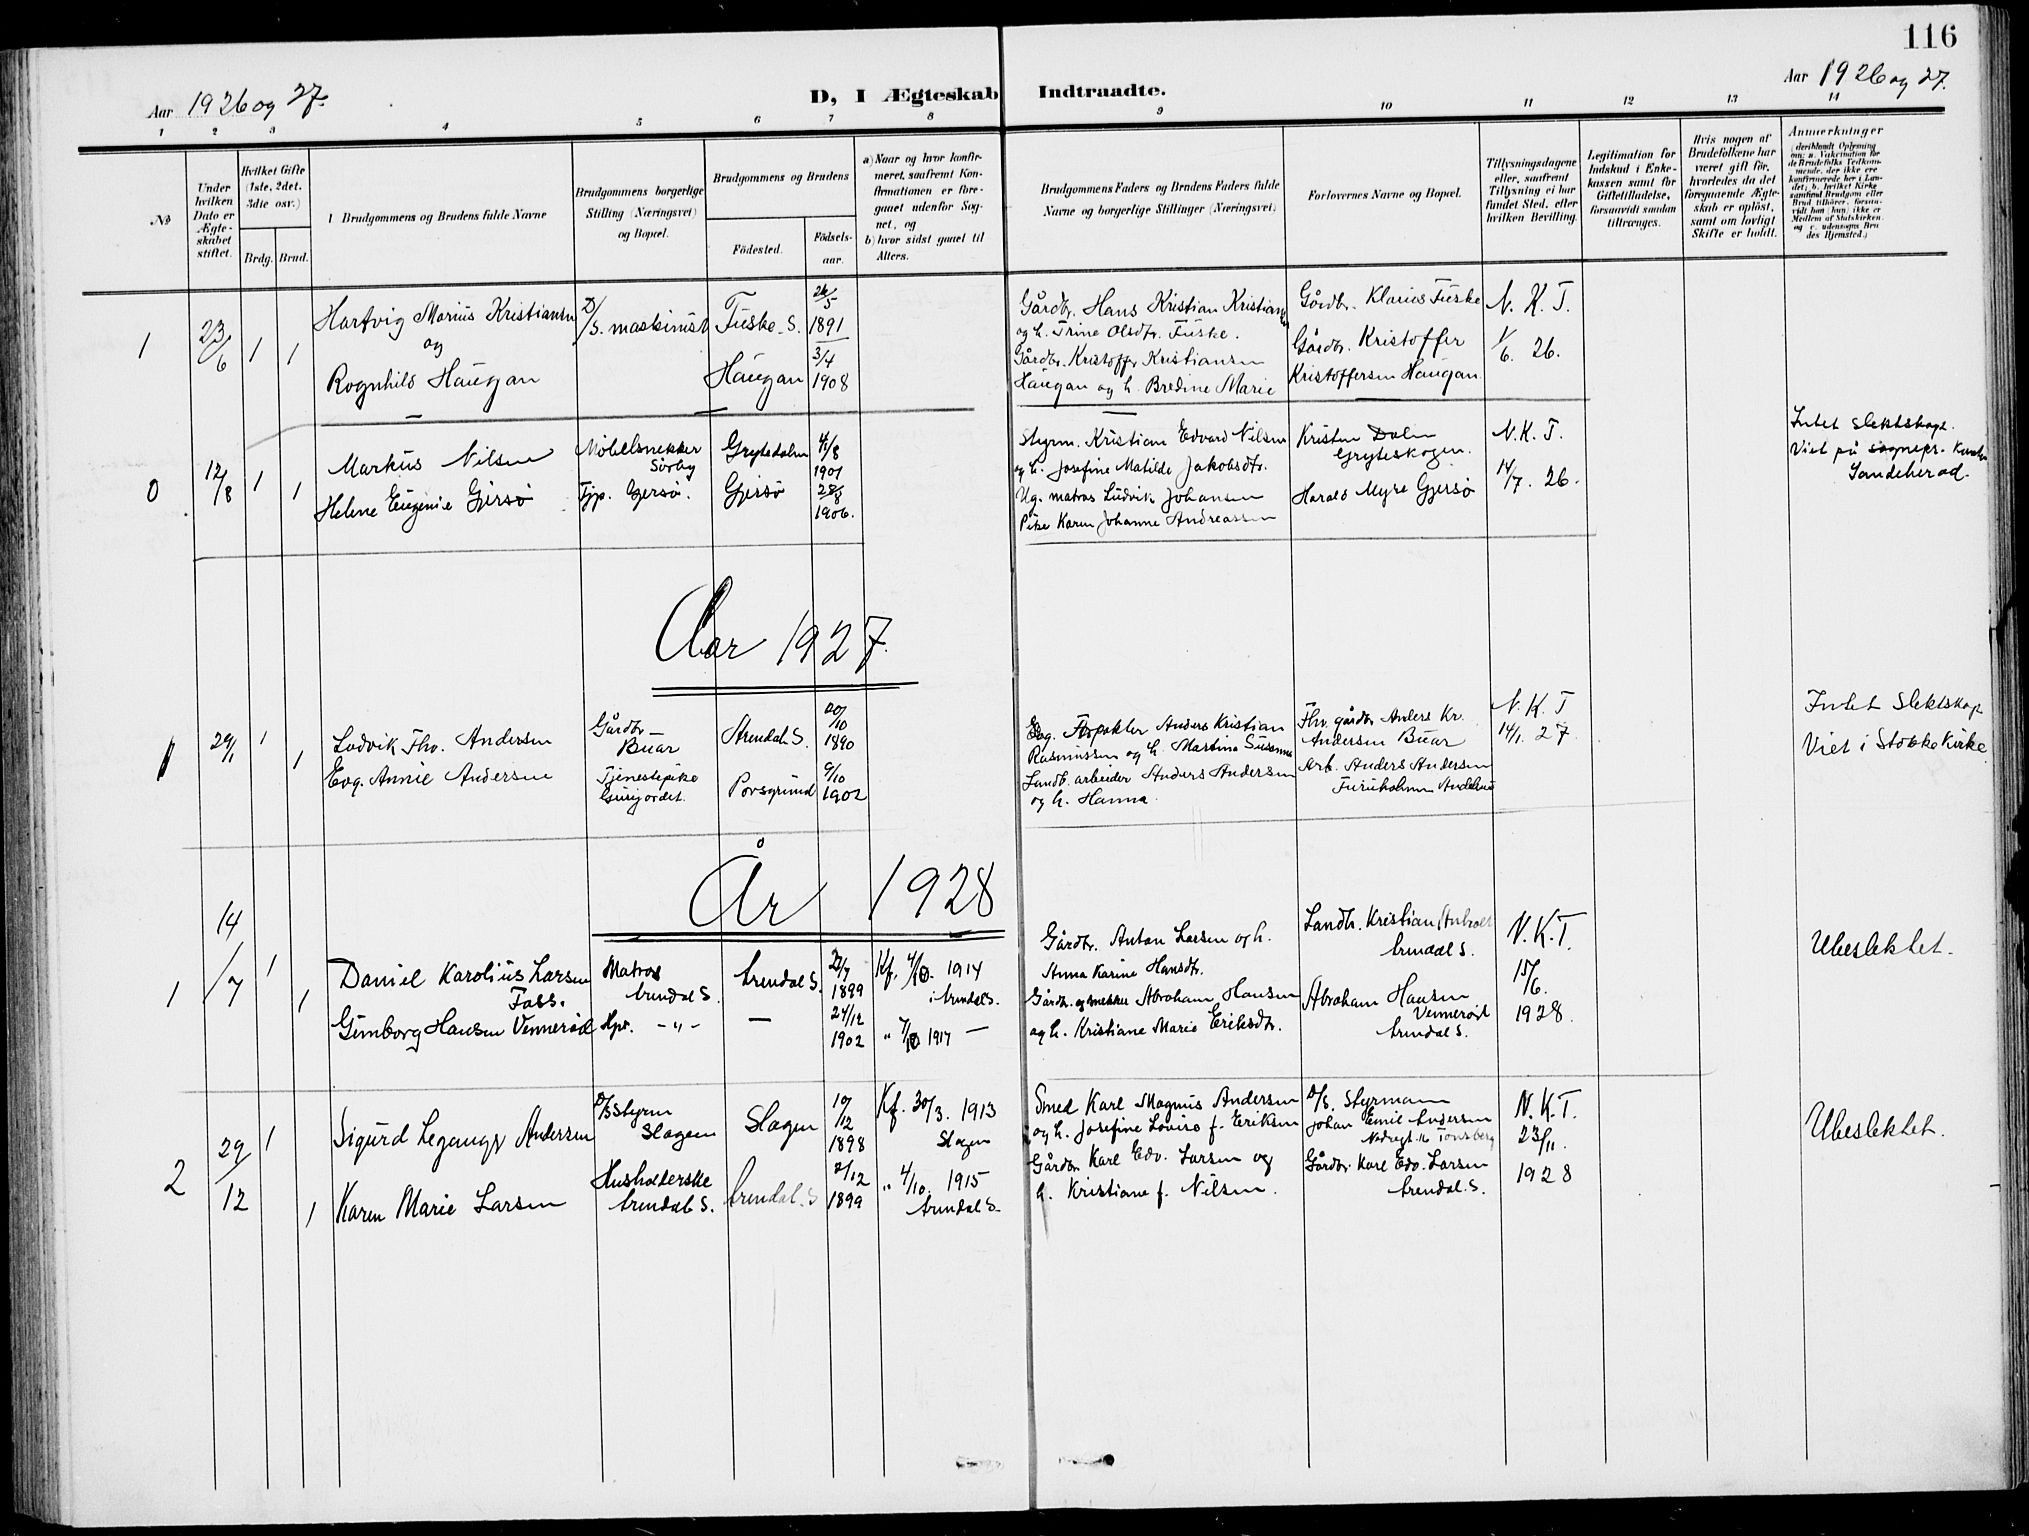 116
Aar 1926 og 27.
D, I Ægteskab Indtraadte.
Aar 1926 og 27.
1 2 3 4 5 6 7 8 9 10 11 12 13 14
No
Under hvilken Dato er Ægteskabet stiftet.
Hvilket Gifte (1ste, 2det. 3die osv.)
Brdg. Brud.
Brudgommens og Brudens fulde Navne
Brudgommens borgerlige Stilling (Næringsvei) og Bopæl.
Brudgommens og Brudens
Födested.
Födsels-aar.
a) Naar og hvor konfirmeret, saafremt Konfirmationen er foregaaet udenfor Sognet, og
b) hvor sidst gaaet til Alters.
Brudgommens Faders og Brudens Faders fulde Navne og borgerlige Stillinger (Næringsvei)
Forlovernes Navne og Bopæl.
Tillysningsdagene eller, saafremt Tillysning ei har fundet Sted, efter hvilken Bevilling.
Legitimation for Indskud i Enkekassen samt for Giftetilladelse, forsaavidt saadan tiltrænges.
Hvis nogen af Brudefolkene har været gift för, hvorledes da det foregaaende Ægteskab er oplöst, samt om lovligt Skifte er holdt.
Anmerkninger
(deriblandt Oplysning om: a. Vakcination for de Brudefolks Vedkommende, der ikke ere konfirmerede her i Landet; b. hvilket Kirkesamfund Brudgom eller Brud tilhører, forsaavidt han (hun) ikke er Medlem af Statskirken, og c. udensogns Brudes Hjemsted.)
1 23/6 1 1
Hartvig Marius Kristiansen
og
Rognhild Haugan
D/S. maskinist
Fuske. S.
26/5 1891
Haugan
3/4 1908
Gårdbr. Hans Kristian Kristiansen
og h. Trine Olsdtr. Fuske.
Gårdbr. Kristoffer Kristiansen
Haugan og h. Bredine Marie
Gårdbr. Klarius Fuske
Gårdbr. Kristoffer
Kristoffersen Haugan.
N. K. T.
1/6. 26.
0 12/8 1 1
Markus Nilsen
Helene Eugenie Gjersö
Möbelsnekker
Sörby
Tjp. Gjersö.
Grytedalen
Gjersö
4/8 1901
28/8 1906.
Styrm. Kristian Edvard Nilsen
og h. Josefine Matilde Jakobsdtr.
Ug. matros Ludvik Johansen
Pike Karen Johanne Andreassen
Kristen Dalen
Gryteskogen.
Harald Myre Gjersö
N. K. T.
14/7. 26.
Intet slektskap.
Viet på sognepr. Kontor
Sandeherad.
Aar 1927.
1 29/1 1 1
Lodvik Thv. Andersen
Evg. Annie Andersen
Gårdbr
Buar
Tjenestepike
Gurijordet.
Arendal S.
Porsgrund
20/10 1890
9/10 1902
Anders Kristian
Rasmussen og h. Martine Susanne
Landb. arbeider Anders Andersen
og h. Hanna.
Fhv. gårdbr Anders Kr.
Andersen Buar
Arb. Anders Andersen
Furuholmen Andebu
N. K. T
14/1. 27.
Intet Slektskap
Viet i Stokke Kirke
År 1928
1 14/7 1 1
Daniel Karolius Larsen
Foss.
Gunborg Hansen Vennerød
Matros
Arendal S.
Hpr. - " -
Arendal S.
—
1899
24/12 1902
Kf. 4/10. 1914
i Arendal S.
" 7/10 1917 —
Gårdbr. Anton Larsen og h.
Anna Karine Hansdtr.
Gårdbr. og snekker Abraham Hansen
og h. Kristiane Marie Eriksdtr.
Landbr. Kristian Anholt
Arendal S.
Abraham Hansen
Vennerød
Arendal S.
N. K. T.
15/6.
1928.
Ubeslektet.
2 29/12 1 1
Sigurd Legangr Andersen
Karen Marie Larsen
D/S Styrm
Slagen
Husholderske
Arendal S.
Slagen
Arendal. S
10/12 1898
2/12 1899
Kf. 30/3. 1913
Slagen
" 4/10. 1915
Arendal S.
Smed Karl Magnus Andersen
og h. Josefine Lovise f. Eriksen
Gårdbr Karl Edv. Larsen og
h. Kristiane f. Nilsen.
D/S. Styrmann
Johan Emil Andersen
Tönsberg
Gårdbr. Karl Edv. Larsen
Arendal. S.
N. K. T.
23/11.
1928
Ubeslektet.